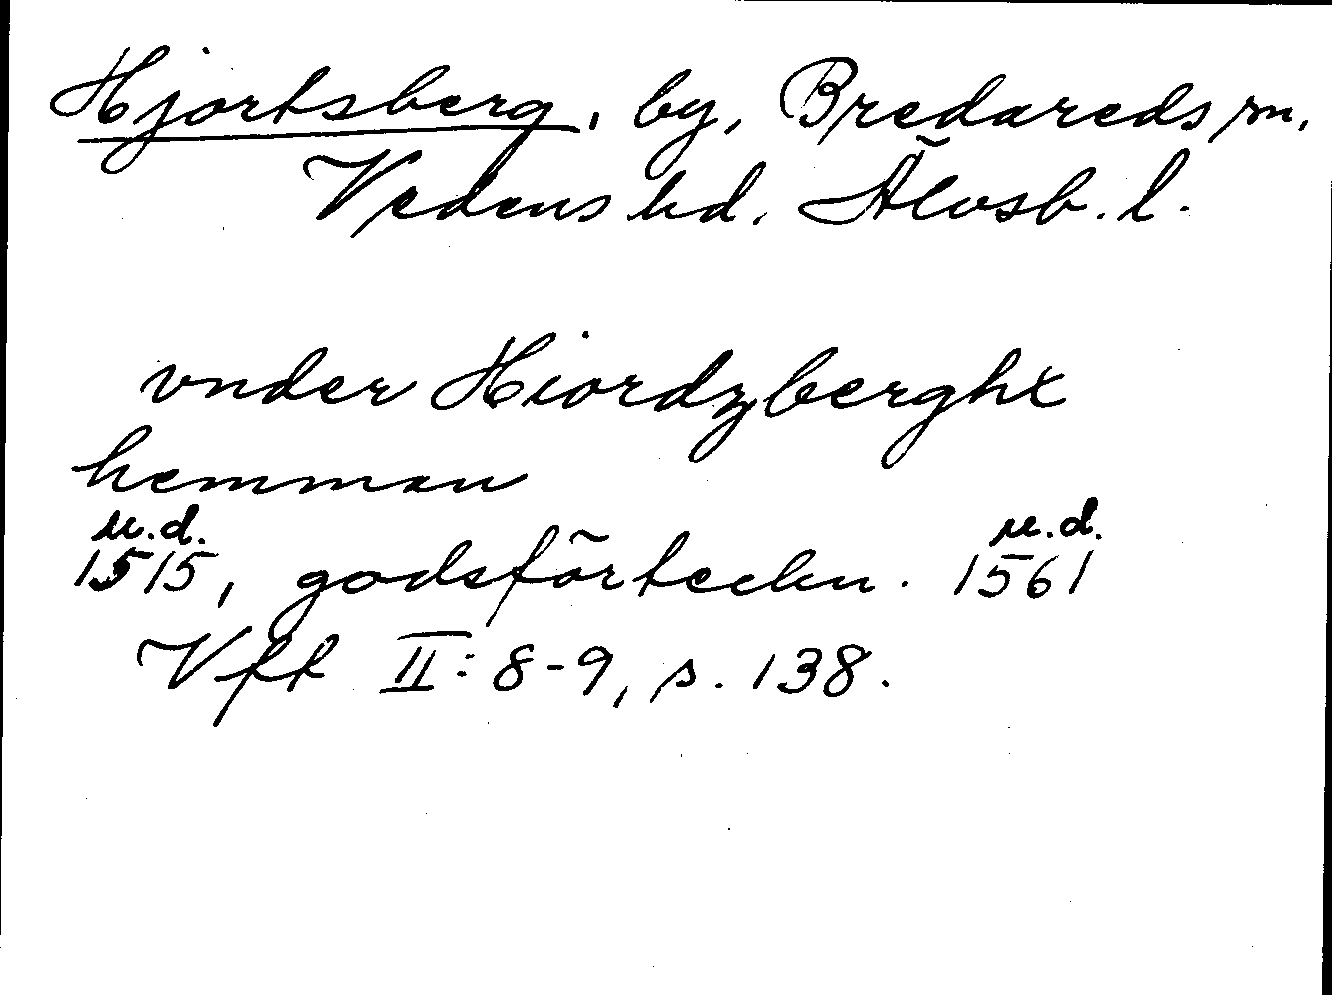 Hjortsberg, by, Bredareds sn,
Vedens hd. Älvsb. l.
vnder Hiordzberghx
hemman
u.d. u.d.
1515, godsförteckn. 1561
Vft II: 8-9, s. 138.